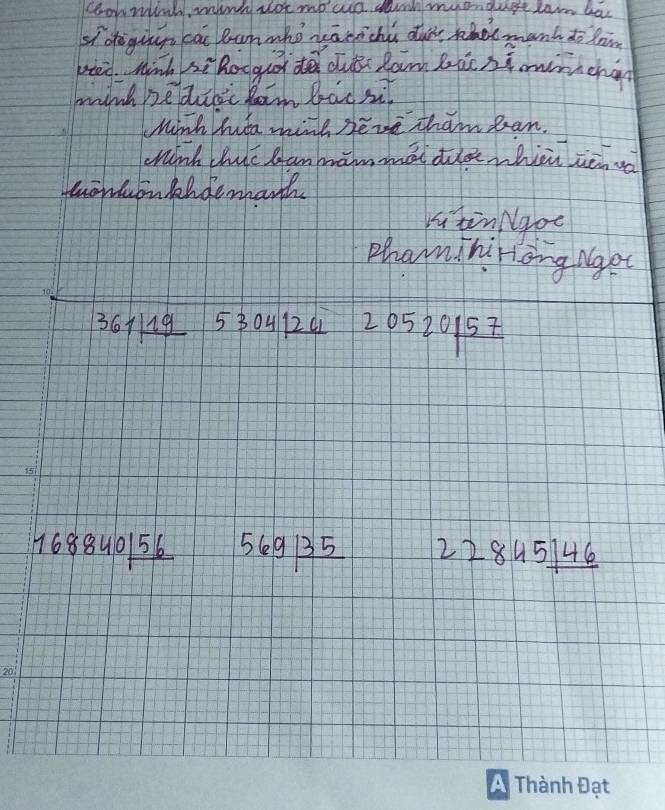 con mình, mình ước mơ của mình muốn được làm bác
sĩ để giúp các bạn nhỏ và các chú được khỏe mạnh để làm
việc. Mình sẽ học giỏi để được làm bác sĩ mình chăm
mình sẽ được làm bác sĩ.
Mình hứa mình sẽ về thăm bạn.
Mình chúc bạn năm mới được nhiều niên và
luôn luôn khỏe mạnh
kí tên Ngọc
Phạm Thị Hồng Ngọc
10
361 19 5304 24 20520 57
15
168840 56 569 35 22845 146
20
A Thành Đạt